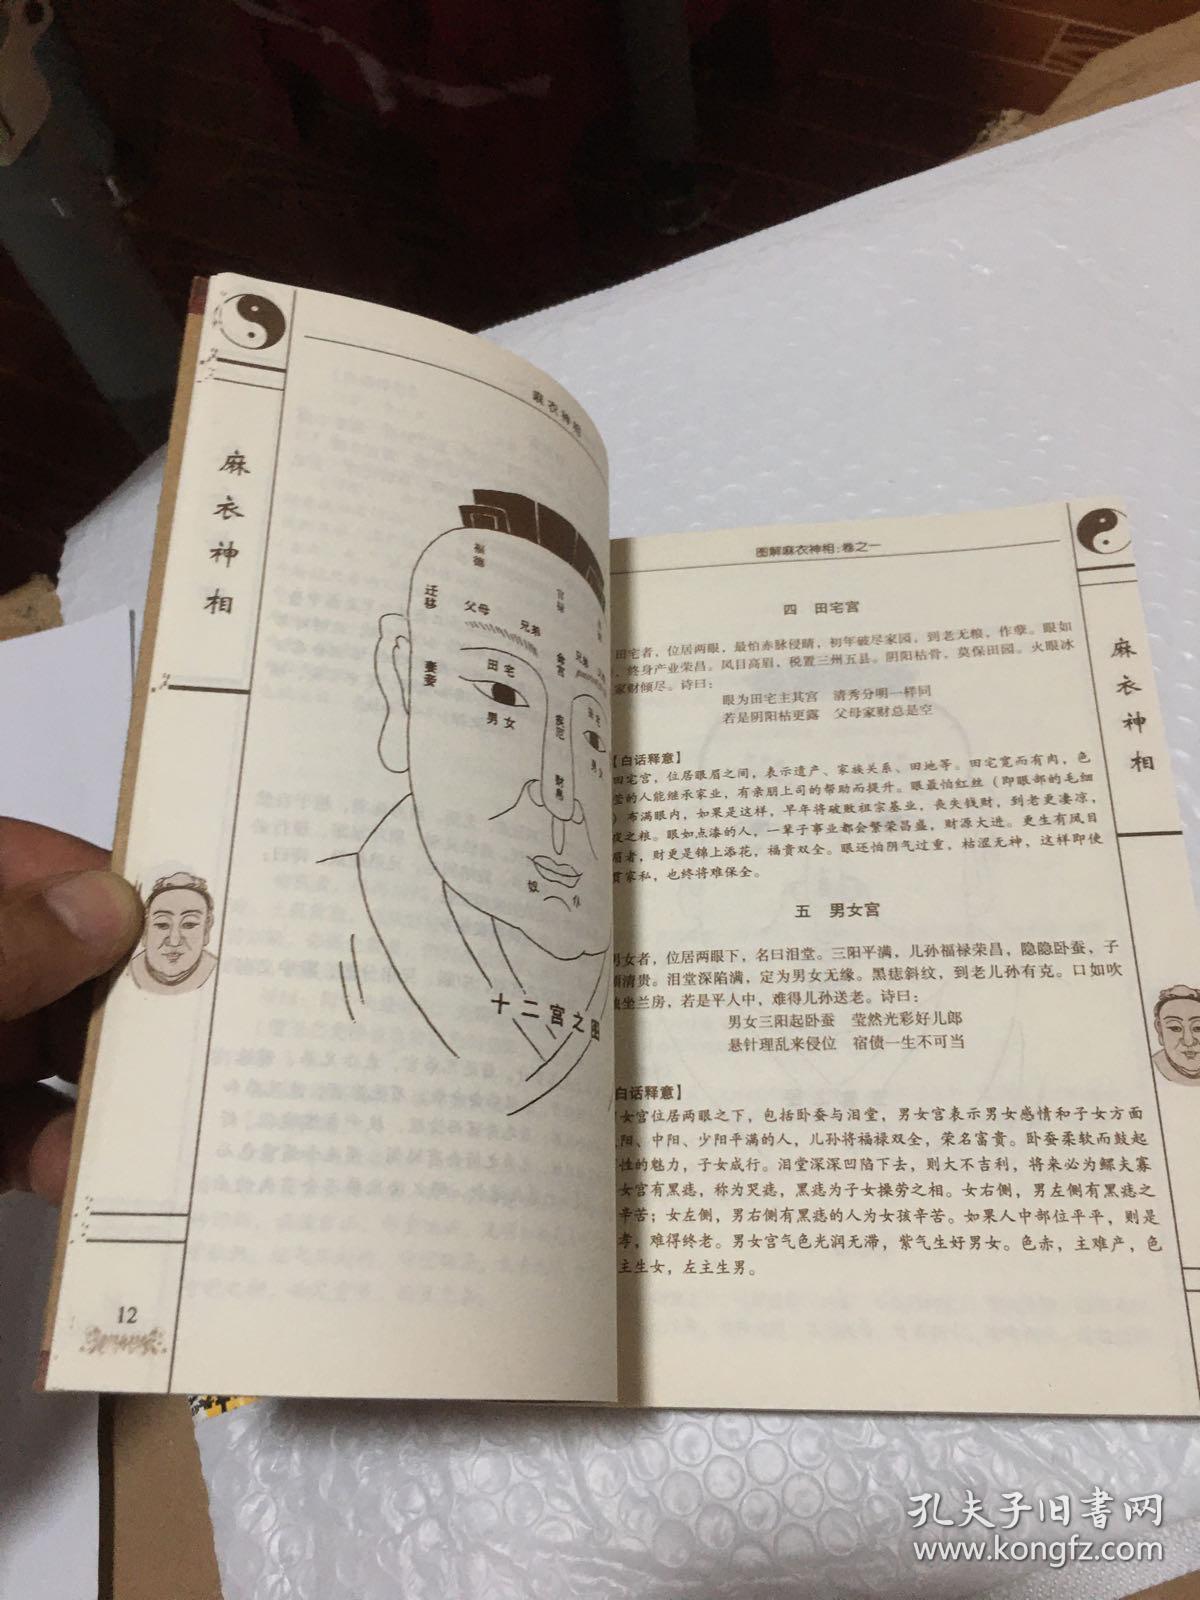 麻衣神相
麻衣神相
福德
官禄
迁移
父母
兄弟
命宫
兄弟
妻妾
田宅
男女
疾厄
田宅
男女
财帛
奴
仆
十二宫之图
12
图解麻衣神相：卷之一
四　田宅宫
田宅者，位居两眼，最怕赤脉侵睛，初年破尽家园，到老无粮，作孽。眼如
，终身产业荣昌。凤目高眉，税置三州五县。阴阳枯骨，莫保田园。火眼冰
家财倾尽。诗曰：
眼为田宅主其宫　清秀分明一样同
若是阴阳枯更露　父母家财总是空
【白话释意】
田宅宫，位居眼眉之间，表示遗产、家族关系、田地等。田宅宽而有肉，色
莹的人能继承家业，有亲朋上司的帮助而提升。眼最怕红丝（即眼部的毛细
）布满眼内，如果是这样，早年将破败祖宗基业，丧失钱财，到老更凄凉，
夜之粮。眼如点漆的人，一辈子事业都会繁荣昌盛，财源大进。更生有凤目
眉者，财更是锦上添花，福贵双全。眼还怕阴气过重，枯涩无神，这样即使
贯家私，也终将难保全。
五　男女宫
男女者，位居两眼下，名曰泪堂。三阳平满，儿孙福禄荣昌，隐隐卧蚕，子
须清贵。泪堂深陷满，定为男女无缘。黑痣斜纹，到老儿孙有克。口如吹
独坐兰房，若是平人中，难得儿孙送老。诗曰：
男女三阳起卧蚕　莹然光彩好儿郎
悬针理乱来侵位　宿债一生不可当
白话释意】
女宫位居两眼之下，包括卧蚕与泪堂，男女宫表示男女感情和子女方面
阳、中阳、少阳平满的人，儿孙将福禄双全，荣名富贵。卧蚕柔软而鼓起
性的魅力，子女成行。泪堂深深凹陷下去，则大不吉利，将来必为鳏夫寡
女宫有黑痣，称为哭痣，黑痣为子女操劳之相。女右侧，男左侧有黑痣之
辛苦；女左侧，男右侧有黑痣的人为女孩辛苦。如果人中部位平平，则是
孝，难得终老。男女宫气色光润无滞，紫气生好男女。色赤，主难产，色
主生女，左主生男。
麻衣神相
孔夫子旧书网
www.kongfz.com